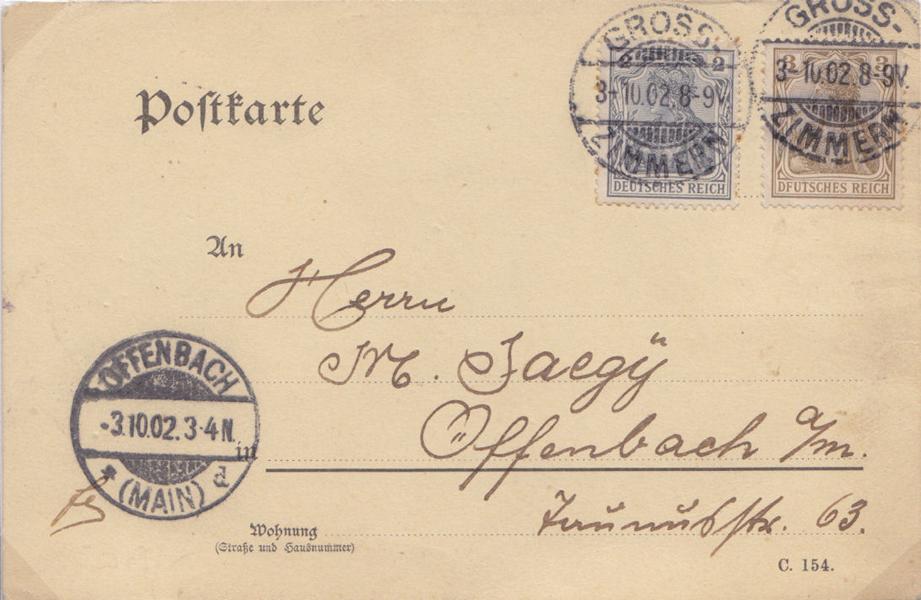 GROSS-
2 2
3-10.02.8-9V.
ZIMMERN
DEUTSCHES REICH
GROSS-
3 3
3-10.02.8-9V.
ZIMMERN
DEUTSCHES REICH
Postkarte
An
Herrn
M. Jaegÿ
Offenbach a/m.
Taunusstr. 63.
OFFENBACH
-3.10.02.3-4N.
* (MAIN) d
in
Wohnung
(Straße und Hausnummer)
C. 154.